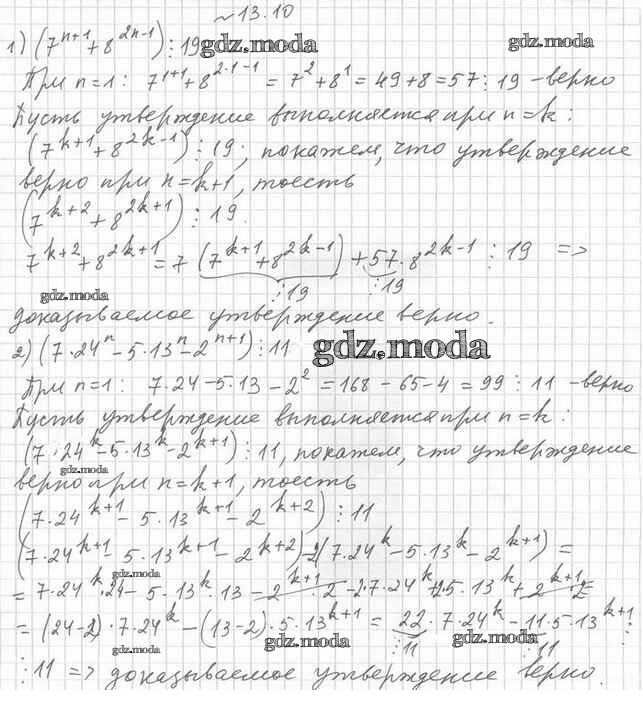 ~13.10
1) (7^{n+1}+8^{2n-1})⋮19 gdz.moda gdz.moda
При n=1: 7^{1+1}+8^{2·1-1} = 7^2+8^1=49+8=57⋮19 -верно
Пусть утверждение выполняется при n=k:
(7^{k+1}+8^{2k-1})⋮19; покажем, что утверждение
верно при n=k+1, тоесть
(7^{k+2}+8^{2k+1})⋮19.
7^{k+2}+8^{2k+1}=7(7^{k+1}+8^{2k-1})+57·8^{2k-1}⋮19 =>
gdz.moda ⋮19 ⋮19
доказываемое утверждение верно.
2) (7·24^n-5·13^n-2^{n+1})⋮11 gdz.moda
При n=1: 7·24-5·13-2^2=168-65-4=99⋮11 -верно
Пусть утверждение выполняется при n=k:
(7·24^k-5·13^k-2^{k+1})⋮11, покажем, что утверждение
gdz.moda
верно при n=k+1, тоесть
(7·24^{k+1}-5·13^{k+1}-2^{k+2})⋮11
(7·24^{k+1}-5·13^{k+1}-2^{k+2})-2(7·24^k-5·13^k-2^{k+1})=
gdz.moda
=7·24^k·24-5·13^k·13-2^{k+1}·2-2·7·24^k+2·5·13^k+2^{k+1}·2=
=(24-2)·7·24^k-(13-2)·5·13^{k+1}=22·7·24^k-11·5·13^{k+1}⋮
gdz.moda gdz.moda gdz.moda ⋮11 ⋮11
⋮11 => доказываемое утверждение верно.